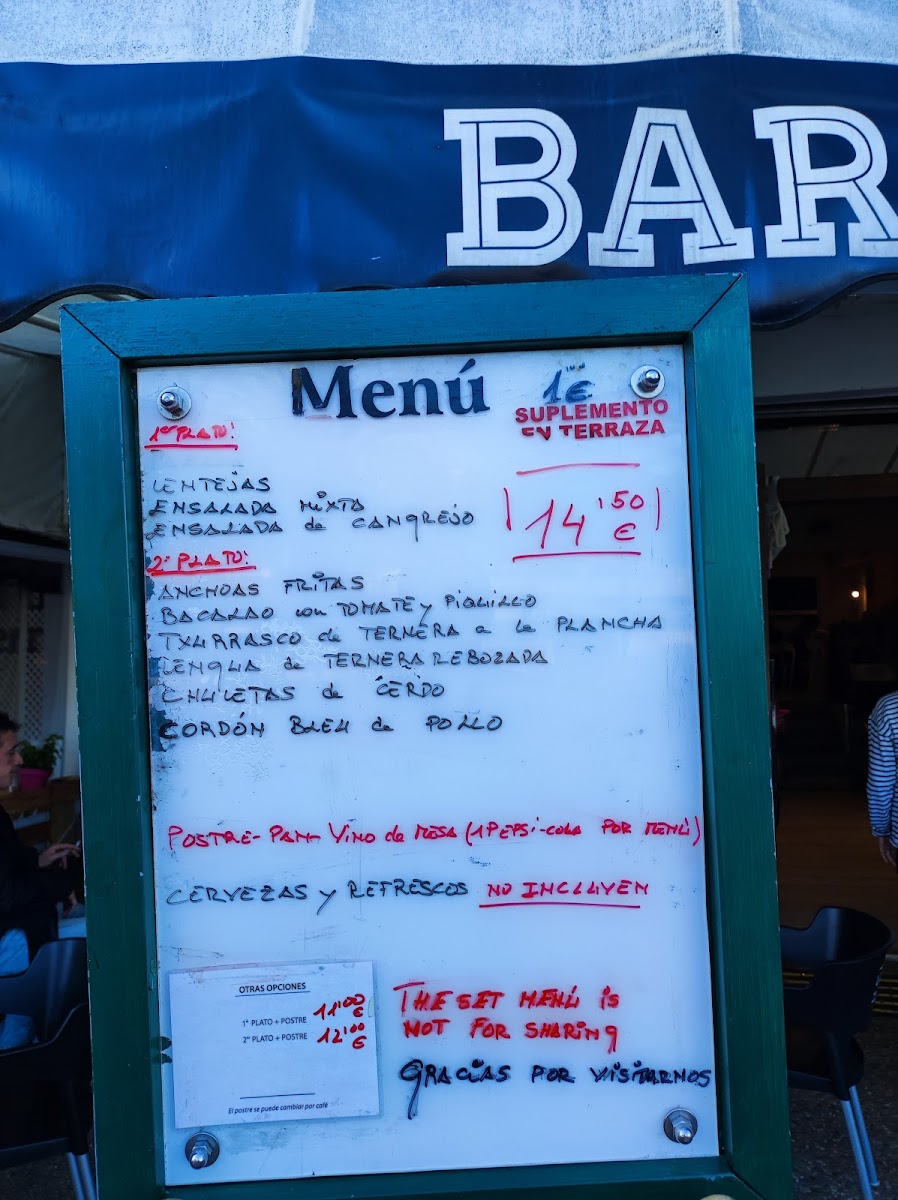 BAR
Menú
1'00 €
SUPLEMENTO
EN TERRAZA
1er PLATO:
LENTEJAS
ENSALADA MIXTA
ENSALADA de CANGREJO
14'50 €
2º PLATO:
ANCHOAS FRITAS
BACALAO con TOMATE y PIQUILLO
TXURRASCO de TERNERA a la PLANCHA
LENGUA de TERNERA REBOZADA
CHULETAS de CERDO
CORDÓN BLEU de POLLO
POSTRE - PAN - VINO de MESA (1 PEPSI-COLA POR MENÚ)
CERVEZAS y REFRESCOS NO INCLUYEN
OTRAS OPCIONES
1º PLATO + POSTRE 11'00 €
2º PLATO + POSTRE 12'00 €
El postre se puede cambiar por café
THE SET MENÚ is
NOT FOR SHARING
GRACIAS POR VISITARNOS